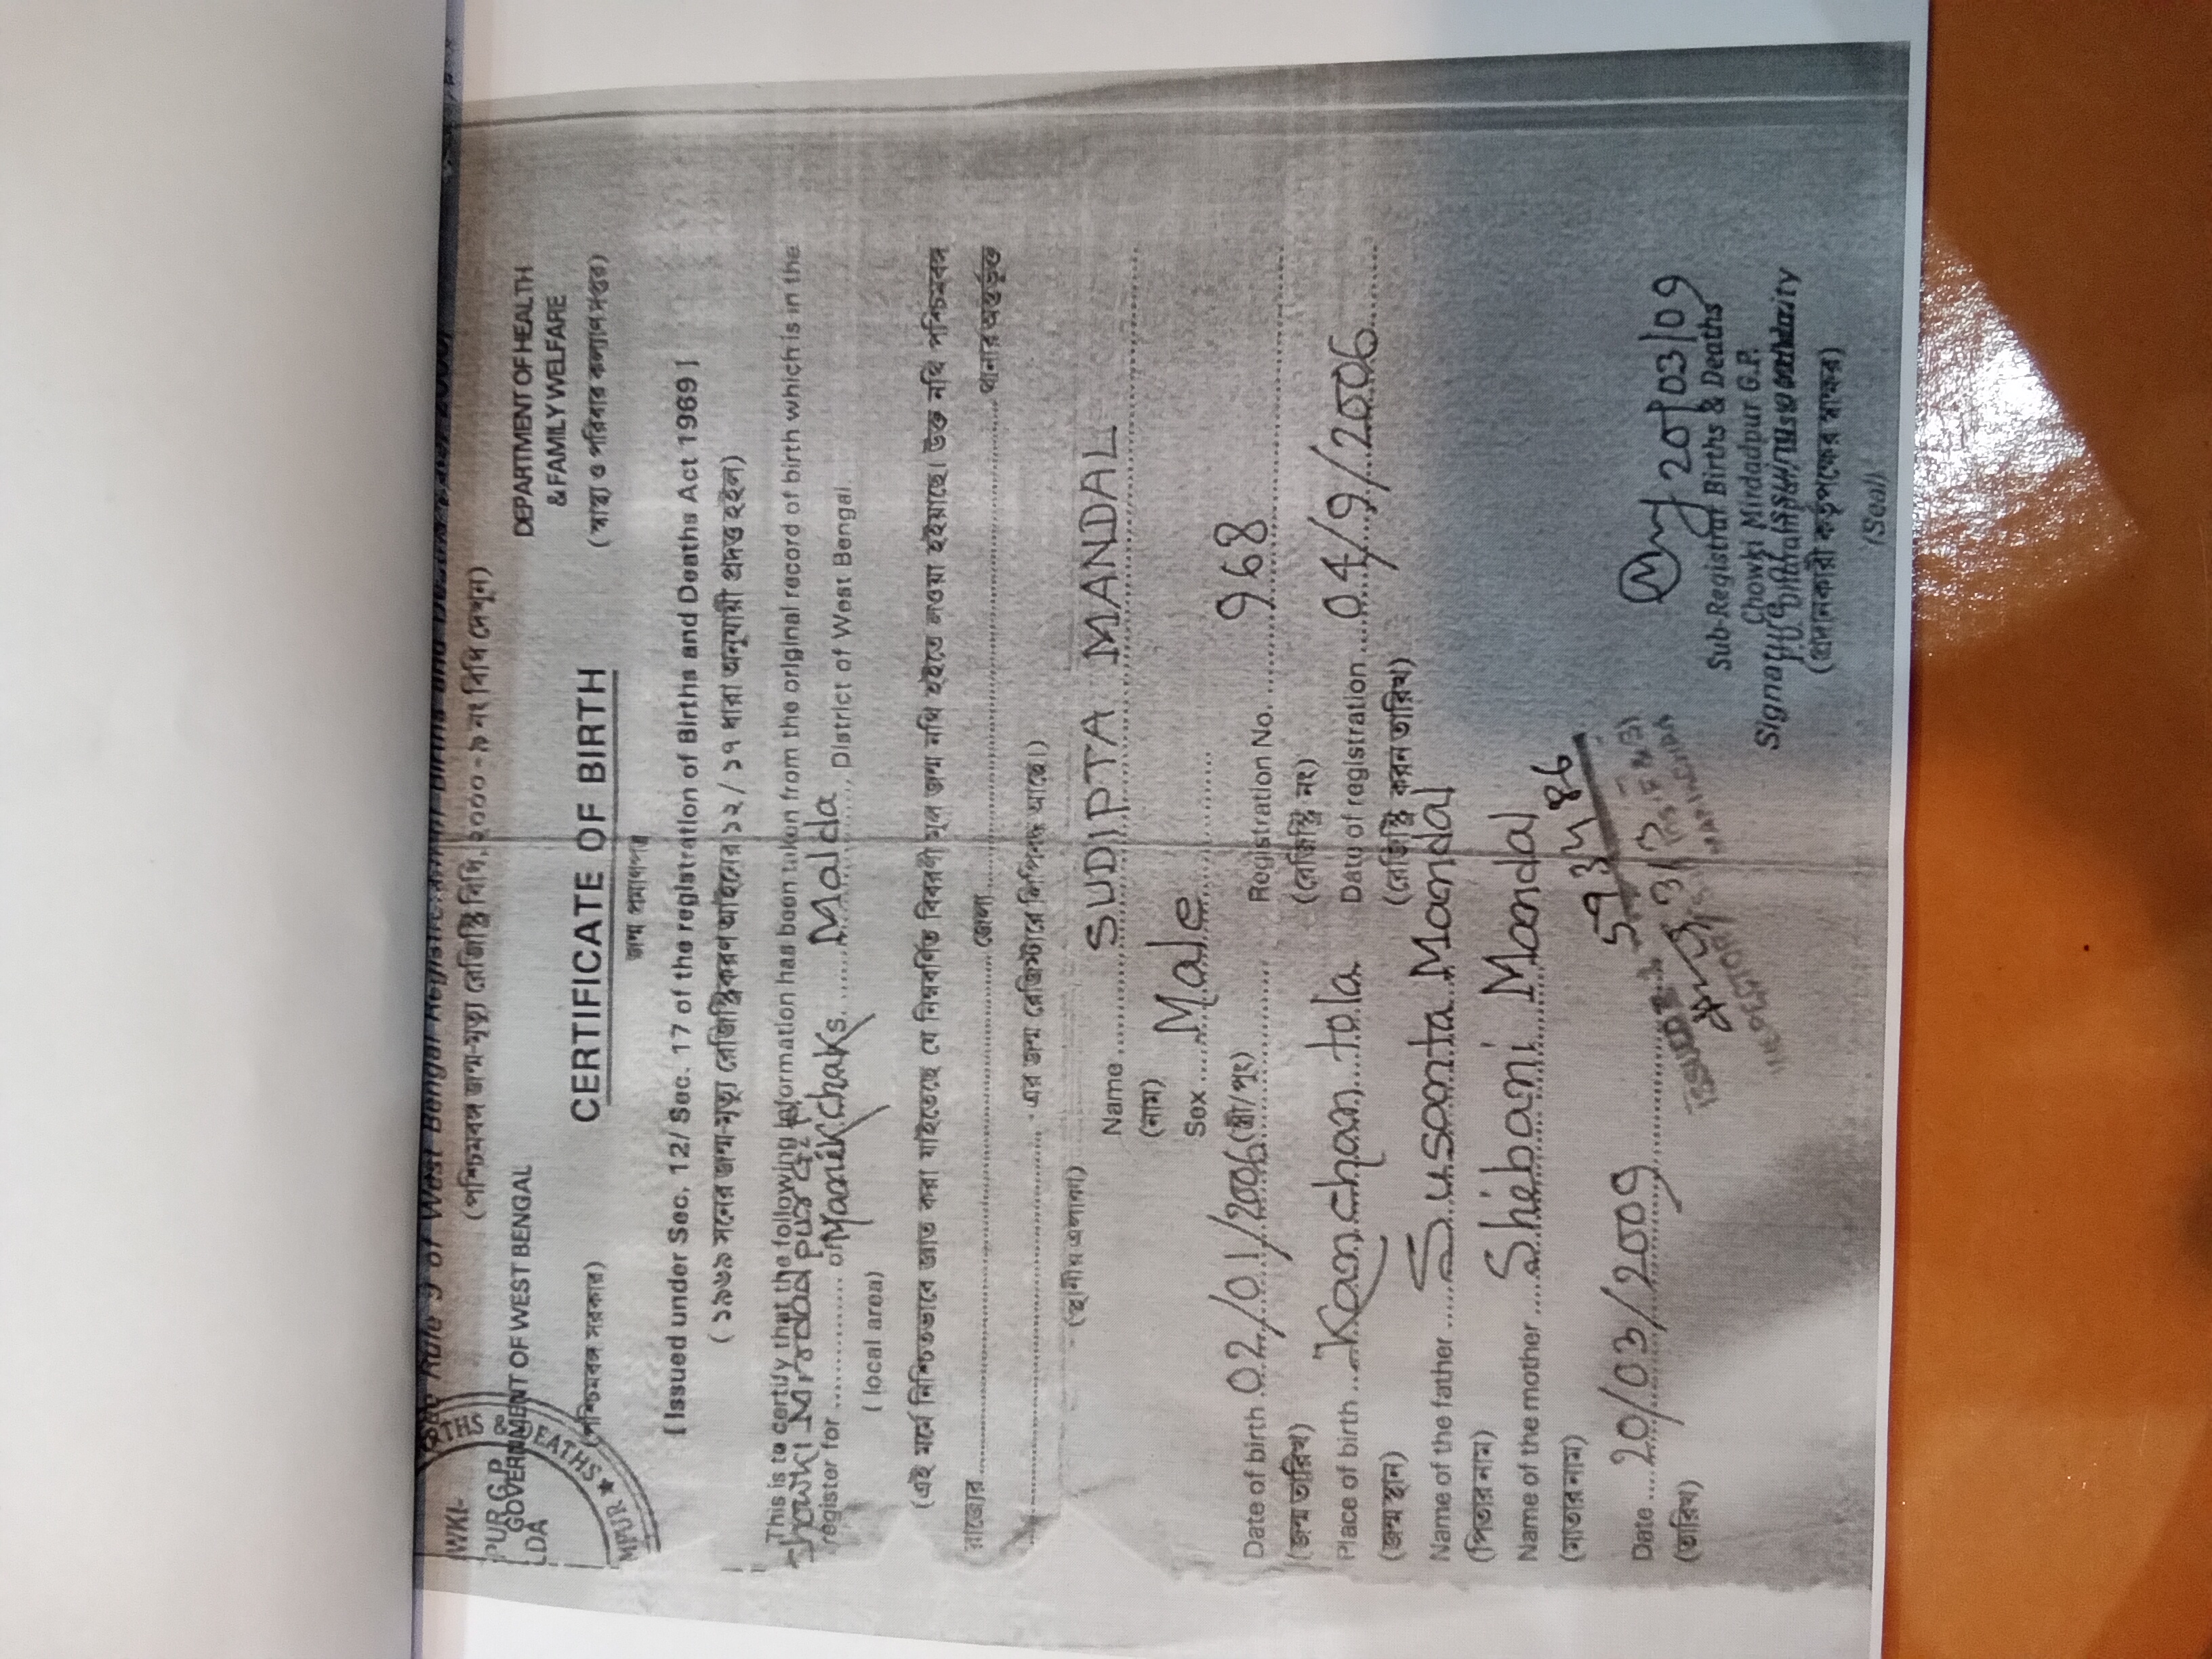 See Rule 9 of West Bengal Registration
(পশ্চিমবঙ্গ জন্ম-মৃত্যু রেজিস্ট্রি বিধি, ২০০০ - ৯ নং বিধি দেখুন)
WKI-
PUR G.P.
LDA
THS & DEATHS ★
MPUR
GOVERNMENT OF WEST BENGAL
DEPARTMENT OF HEALTH
& FAMILY WELFARE
(পশ্চিমবঙ্গ সরকার)
(স্বাস্থ্য ও পরিবার কল্যাণ দপ্তর)
CERTIFICATE OF BIRTH
জন্ম প্রমাণপত্র
[ Issued under Sec. 12/ Sec. 17 of the registration of Births and Deaths Act 1969 ]
( ১৯৬৯ সনের জন্ম-মৃত্যু রেজিস্ট্রিকরণ আইনের ১২ / ১৭ ধারা অনুযায়ী প্রদত্ত হইল)
This is to certify that the following information has been taken from the original record of birth which is in the
register for Chowki Mirdadpur G.P. of Manikchak Malda, District of West Bengal.
( local area)
(এই মর্মে নিশ্চিতভাবে জ্ঞাত করা যাইতেছে যে নিম্নবর্ণিত বিবরণী মূল জন্ম নথি হইতে লওয়া হইয়াছে। উক্ত নথি পশ্চিমবঙ্গ
রাজ্যের জেলা থানার অন্তর্ভুক্ত
এর জন্ম রেজিস্টারে লিপিবদ্ধ আছে।)
(স্থানীয় এলাকা)
Name SUDIPTA MANDAL
(নাম)
Sex Male
Date of birth 02/01/2006 (স্ত্রী/ পুং) Registration No. 968
(জন্ম তারিখ) (রেজিস্ট্রি নং)
Place of birth Kanchantola Date of registration 04/9/2006
(জন্ম স্থান) (রেজিস্ট্রি করন তারিখ)
Name of the father Susanta Mandal
(পিতার নাম)
Name of the mother Shibani Mandal
(মাতার নাম)
Date 20/03/2009
(তারিখ)
20/03/09
Sub-Registrar Births & Deaths
Chowki Mirdadpur G.P.
(প্রদানকারী কর্তৃপক্ষের স্বাক্ষর)
(Seal)